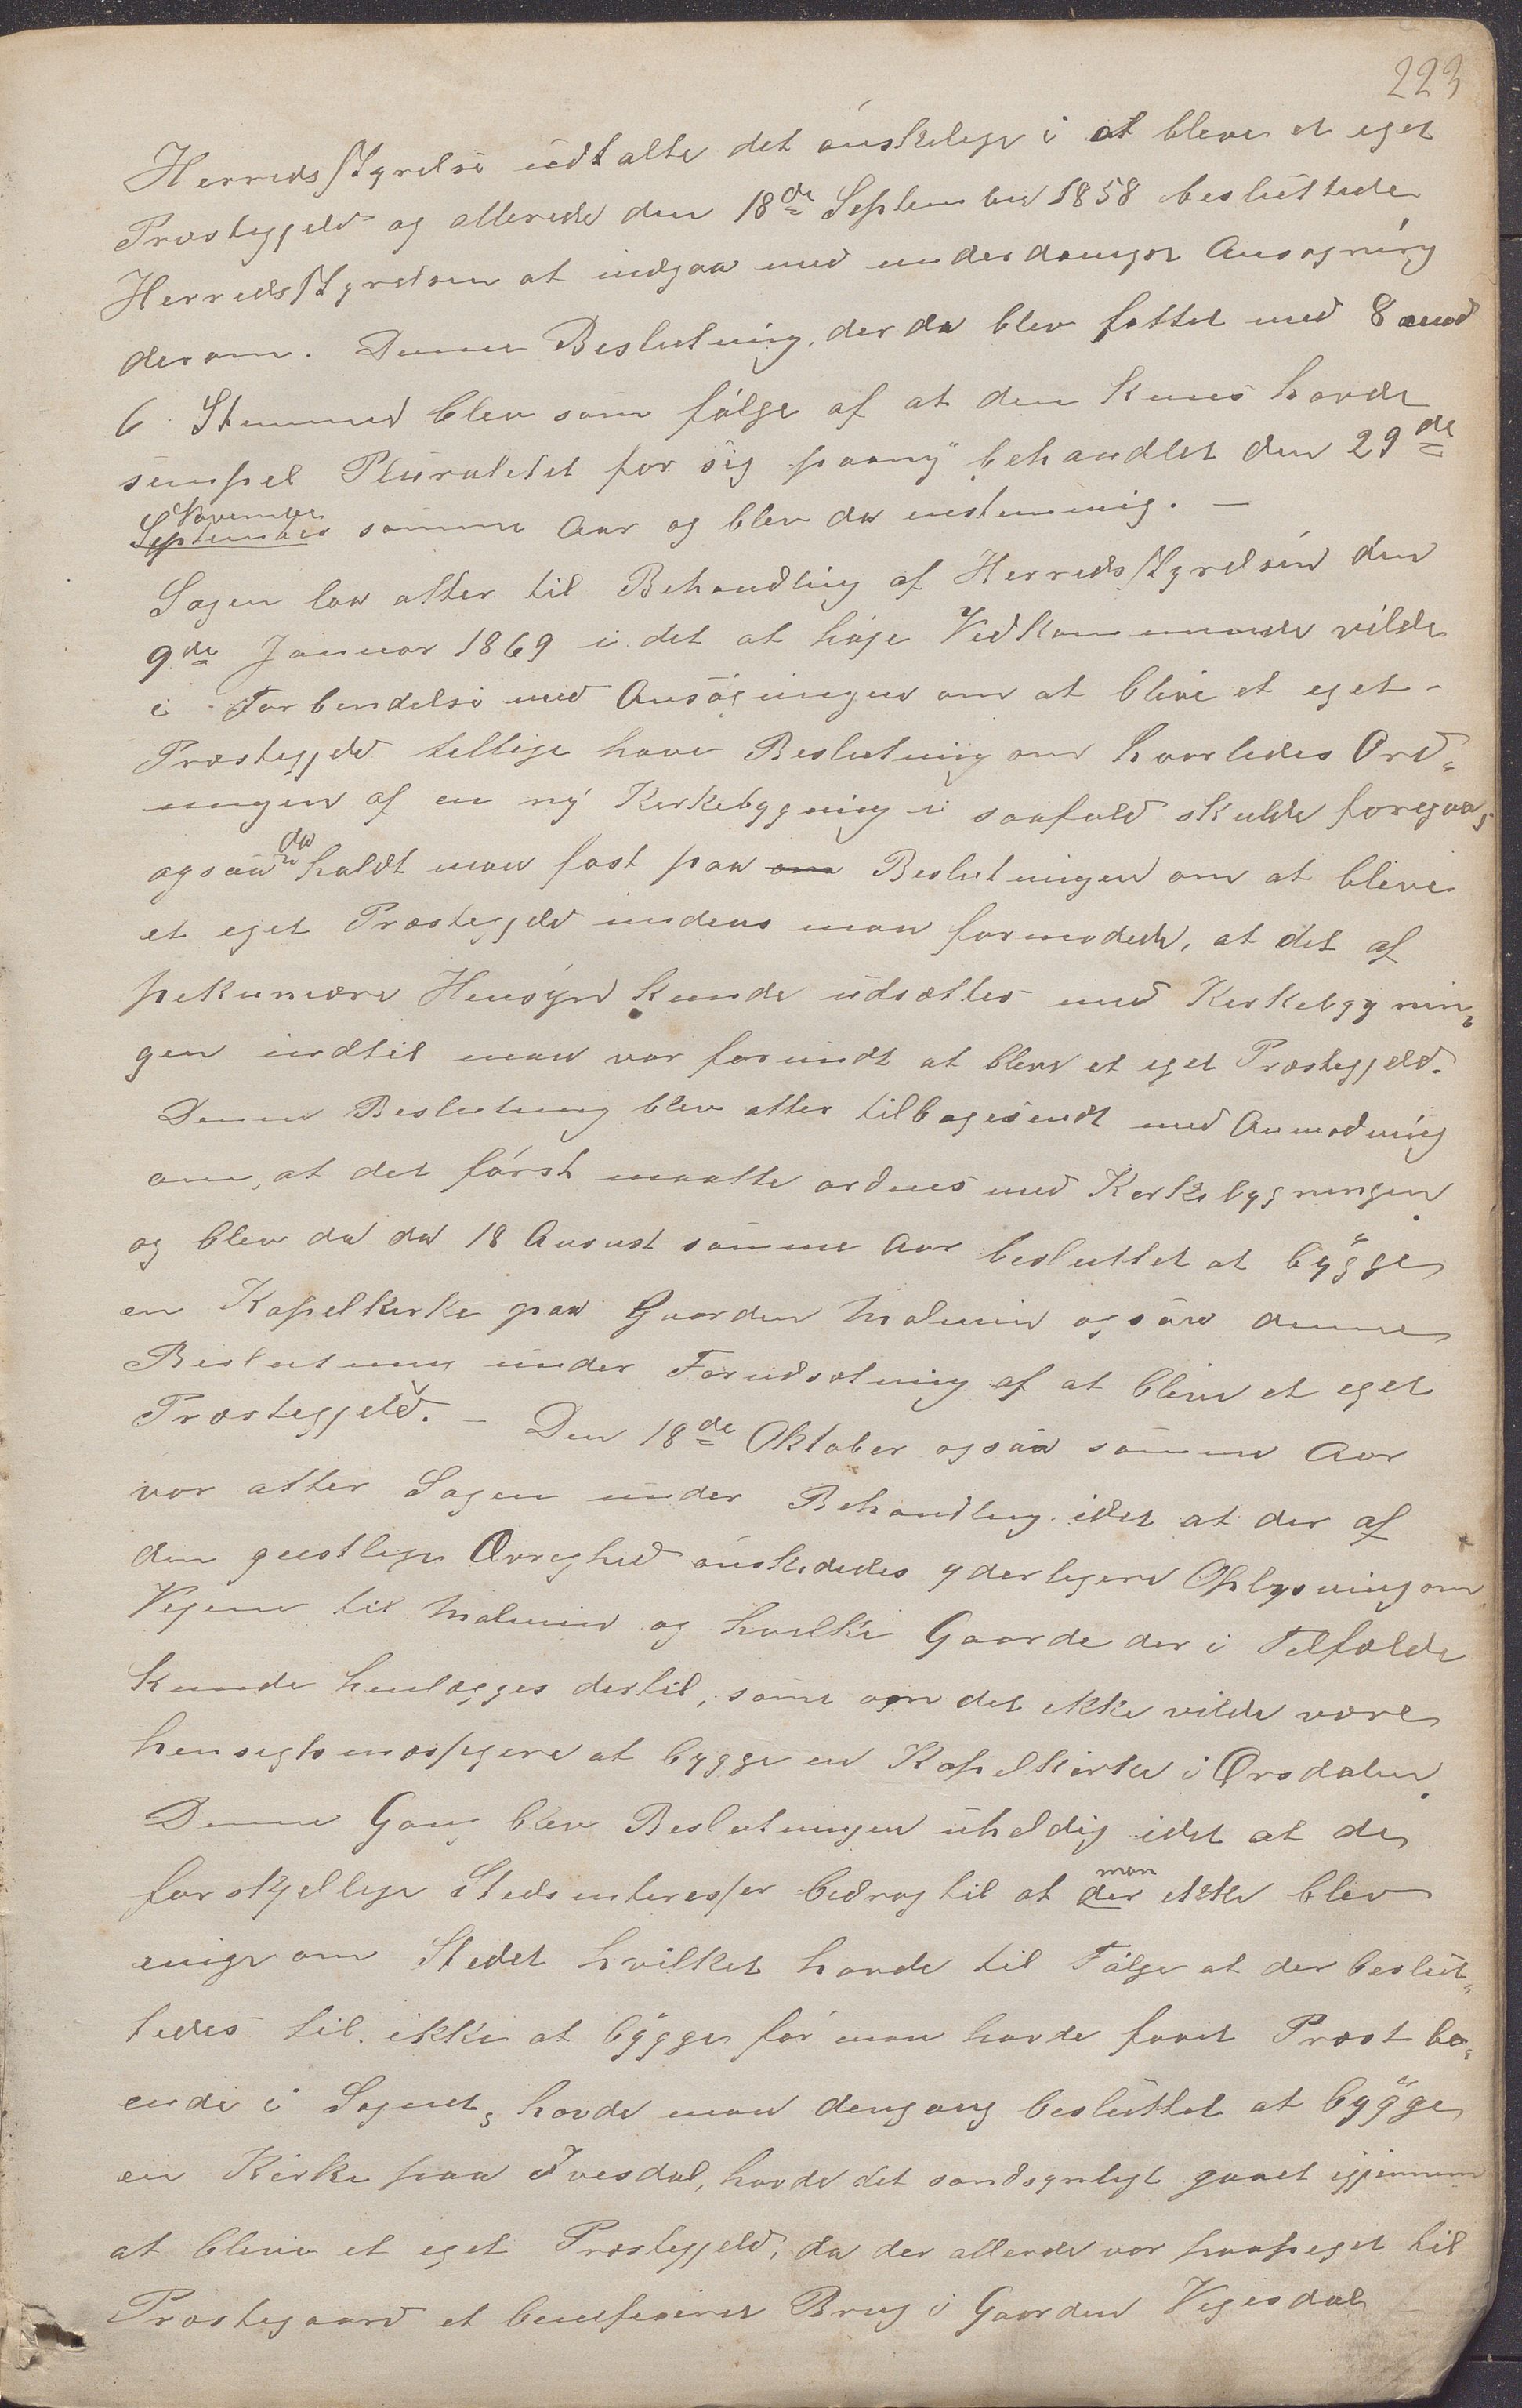 223
Herredsstyrelse udtalte det ønskelige i at blive et eget
Præstegjeld og allerede den 18de September 1858 besluttede
Herredsstyrelsen at indgaa med underdanigst Ansøgning
derom. Denne Beslutning, der da blev fattet med 8 mod
6 Stemmer blev som følge af at den kuns havde
simpel Pluralitet for sig paany behandlet den 29de
November
September samme Aar og blev da enstemmig. —
Sagen laa atter til Behandling af Herredsstyrelsen den
9de Januar 1869 i det at høje Vedkommende vilde
i Forbindelse med Ansøgningen om at blive et eget
Præstegjeld tillige have Beslutning om hvorledes Ord„
ningen af en ny Kirkebygning i saafald skulde foregaa,
ogsaa da holdt man fast paa om Beslutningen om at blive
et eget Præstegjeld indens man formodede, at det af
pekuniære Hensyn kunde udsættes med Kirkebygnin„
gen indtil man var forundt at blive et eget Præstegjeld.
Denne Beslutning blev atter tilbagesendt med Anmodning
om, at det først maatte ordnes med Kirkebygningen
og blev da da 18 August samme Aar besluttet at bygge
en Kapelkirke paa Gaarden Malmin ogsaa denne
Beslutning under Forudsætning af at blive et eget
Præstegjeld. — Den 18de Oktober ogsaa samme Aar
var atter Sagen under Behandling idet at der af
den geistlige Øvrighed ønskedes yderligere Oplysning om
Vejene til Malmin og hvilke Gaarde der i Tilfælde
kunde henlægges dertil, samt om det ikke vilde være
hensigtsmæssigere at bygge en Kapelkirke i Ørsdalen.
Denne Gang blev Beslutningen uheldig idet at de
forskjellige Stedsinteresser bedrog til at der man ikke blev
enige om Stedet hvilket havde til Følge at der beslut„
tedes til ikke at bygge før man havde faaet Præst bo„
ende i Sognet, havde man dengang besluttet at bygge
en Kirke paa Ivesdal, havde det sandsynligt gaaet igjennem
at blive et eget Præstegjeld, da der allerede var paapeget til
Præstegaard et beneficeret Brug i Gaarden Vegesdal